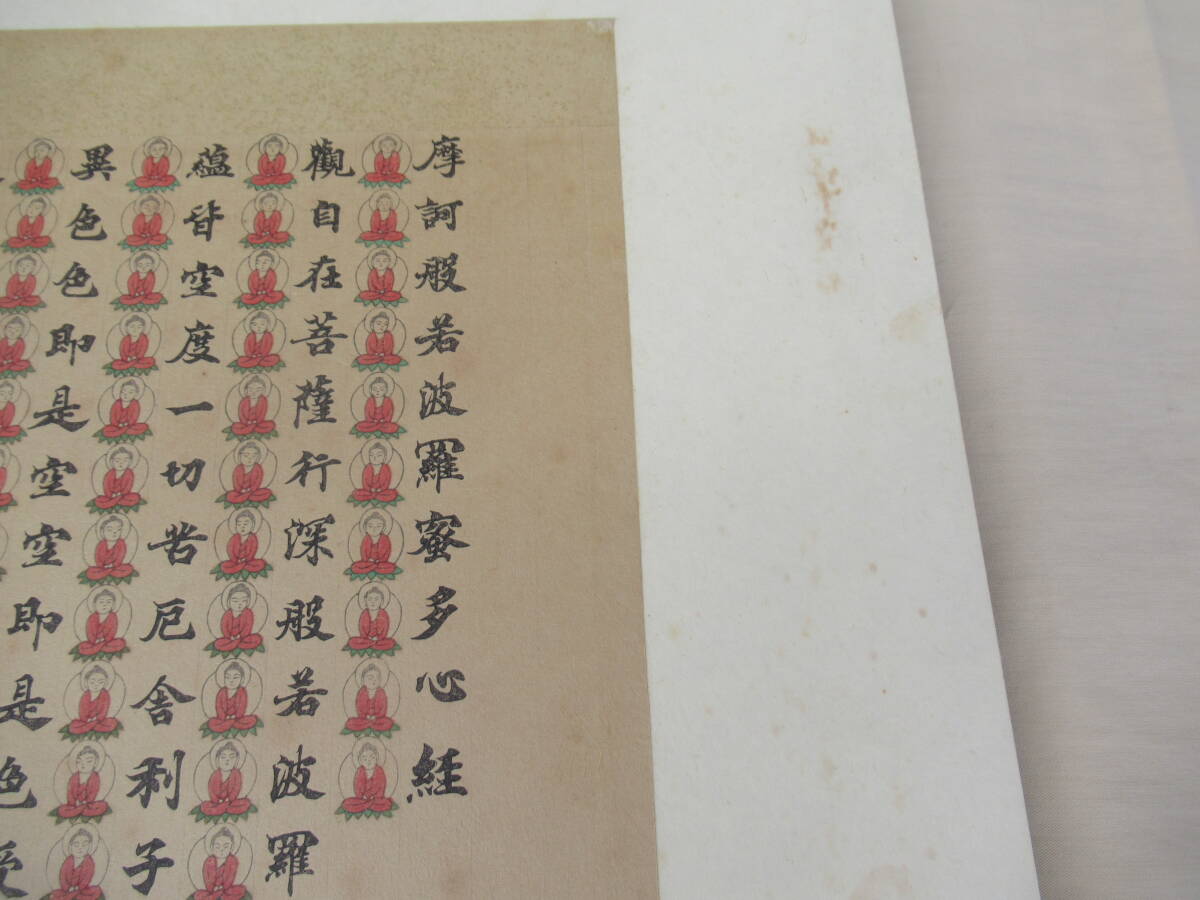 摩訶般若波羅蜜多心経
觀自在菩薩行深般若波羅
蘊皆空度一切苦厄舎利子
異色色即是空空即是色受